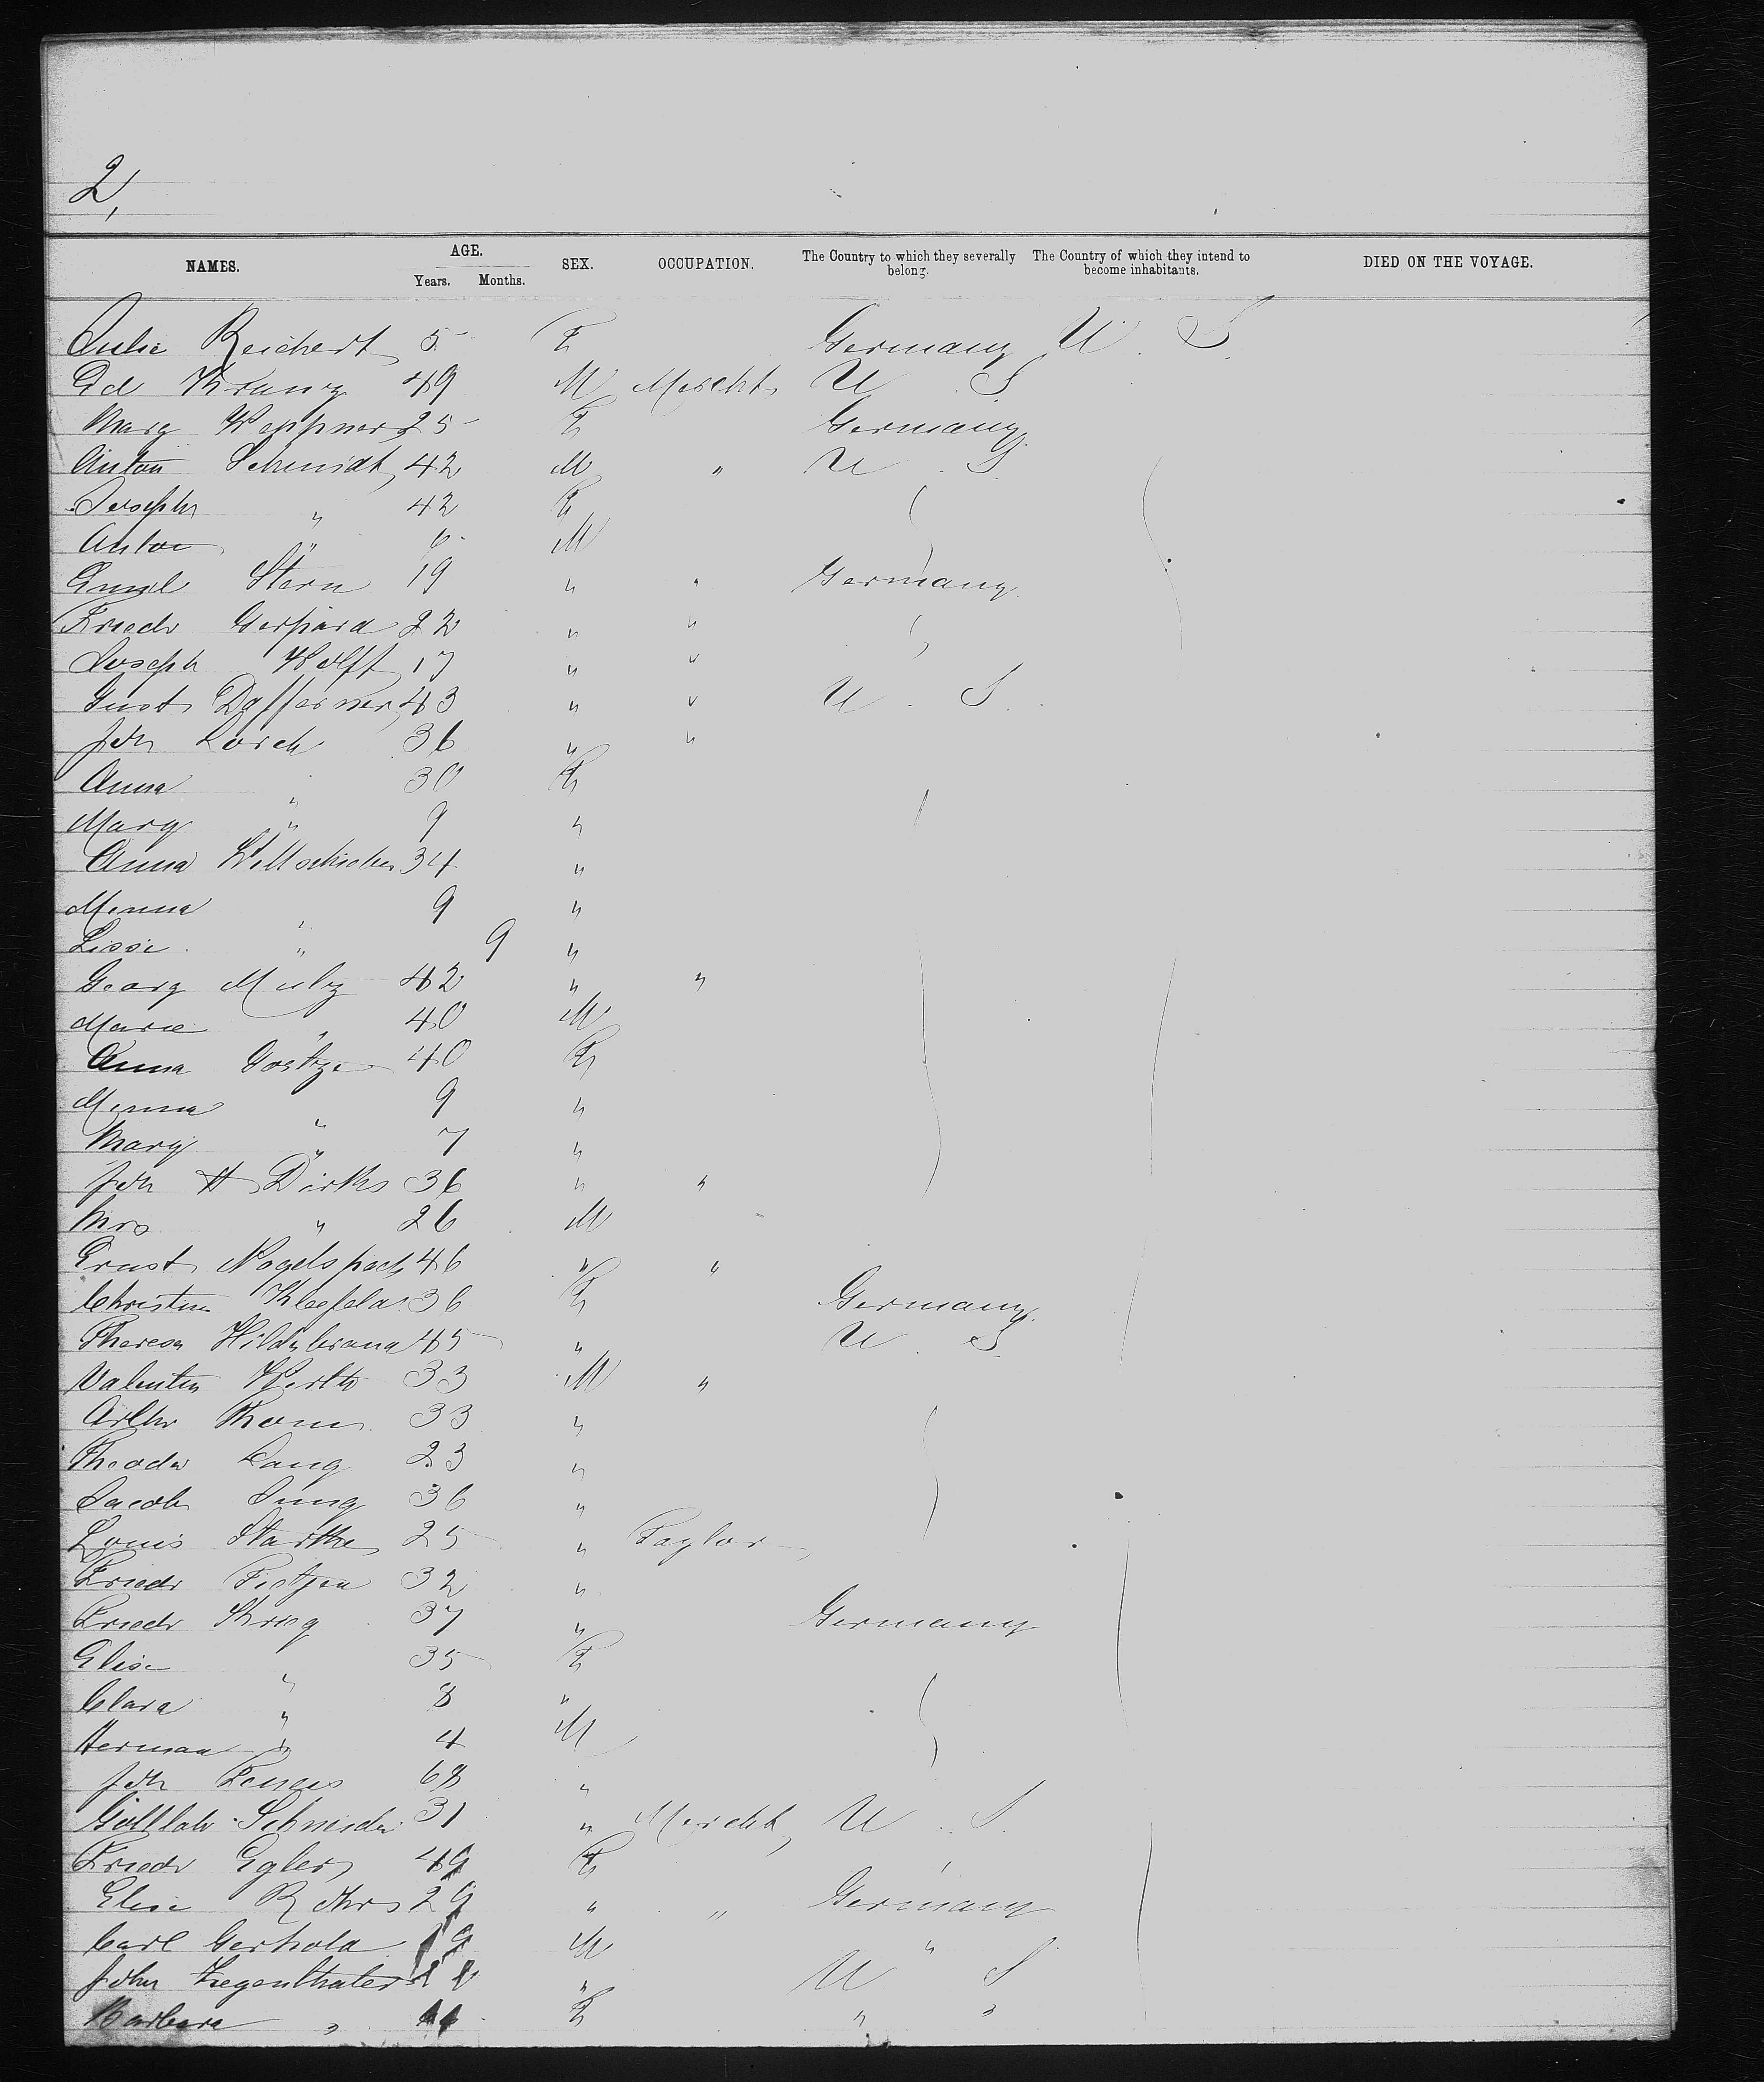 2,
NAMES. AGE. Years. Months. SEX. OCCUPATION. The Country to which they severally belong. The Country of which they intend to become inhabitants. DIED ON THE VOYAGE.
Julie Reichert 5 F Germany U. S.
Ed Kranz 49 M Mercht U. S.
Mary Weppner 25 F Germany
Anton Schmidt 42 M " U. S.
Joseph " 42 F
Anton " 6 M
Emil Stern 19 " " Germany
Friedr 22 " "
Joseph Wolff 17 " "
Gust 43 " " U. S.
Joh Lorch 36 " "
Anna " 30 F
Mary " 9 "
Anna 34 "
Minna " 9 "
Lissi " 9 "
Georg 42 " "
Marie " 40 M
Anna Goetze 40 F
Minna " 9 "
Mary " 7 "
Joh H Dirks 36 " "
Mrs " 26 M
Ernst Nagelspach 46 " "
Christine Kleefeld 36 F Germany
Theresa Hildebrand 45 " U. S.
Valentin Werth 33 M "
Arthr Thom 33 "
Theodor Lang 23 "
Jacob Jung 36 "
Louis Starke 25 " Taylor
Friedr Tietjen 32 "
Friedr Krieg 37 " Germany
Elise " 35 F
Clara " 8 "
Herman " 4 M
Joh 68 "
Gottlob Schneider 31 " Mercht U. S.
Friedr Eglers 49 F
Elise Rohrs 29 " " Germany
Carl Gerhold 19 M "
John Ziegenthaler " U S
Barbara " 44 F " "